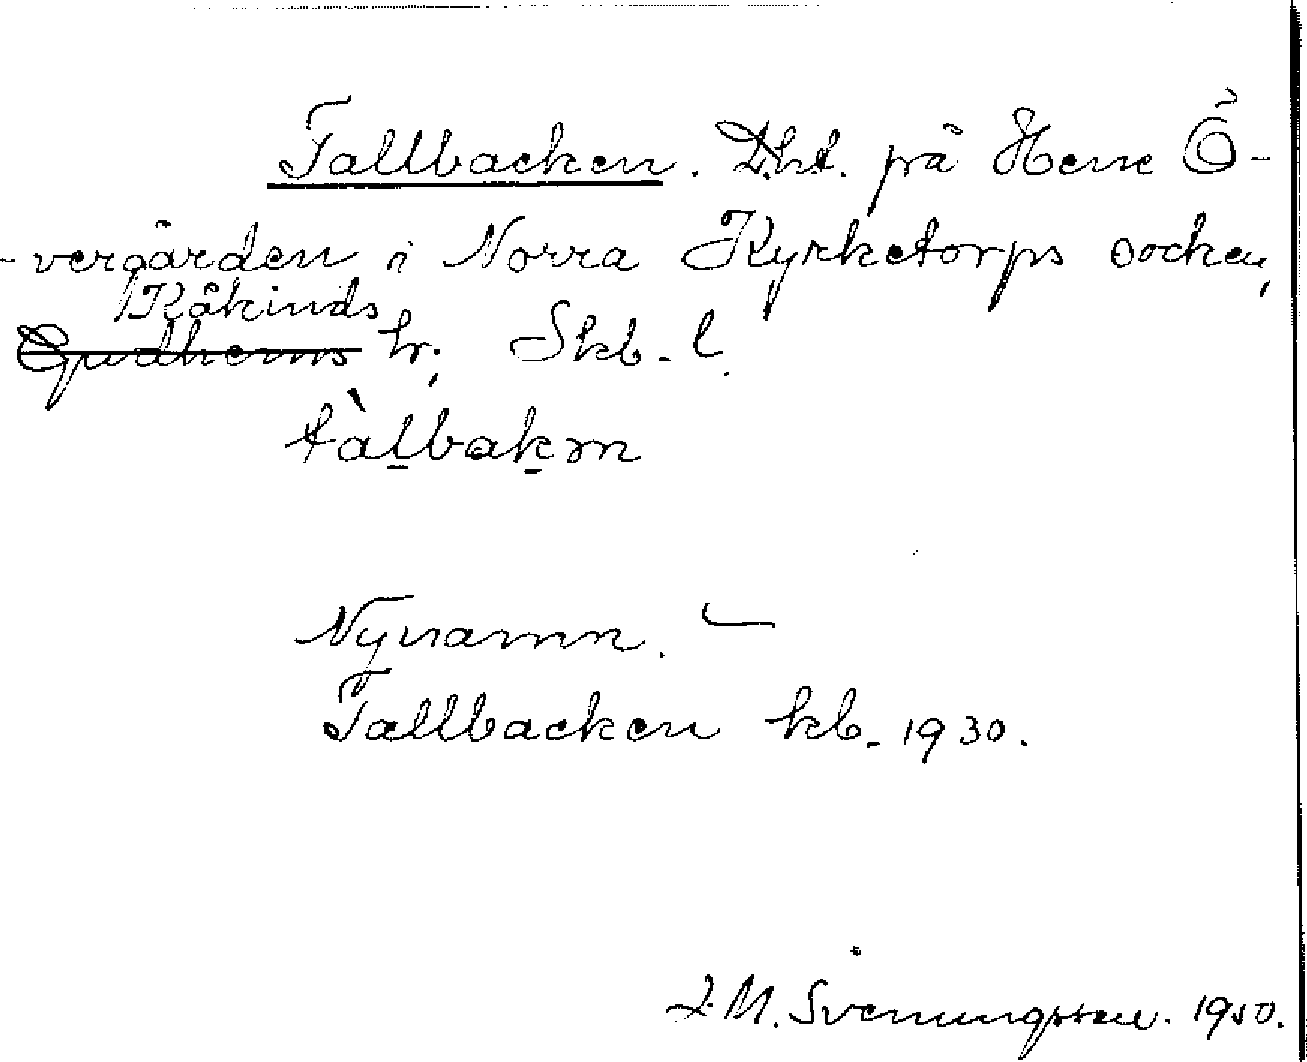 Tallbacken. Lht. på Hene Ö-
-vergården i Norra Kyrketorps socken,
Kåkinds
Gudhems hr; Skb. l.
tàlbakən
Nynamn. –
Tallbacken kb. 1930.
J. M. Svenungsson. 1950.